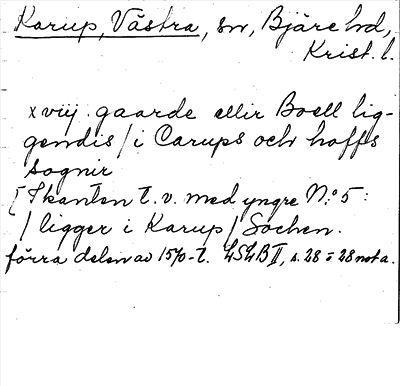 Karup, Västra, sn, Bjäre hd,
Krist. l.
xviij. gaarde ellir Boell lig-
gendis / i Carups och hoffs
sognir
[I kanten t. v. med yngre N:o 5:
/ ligger i Karup / Sochen.
förra delen av 1570-t. LSLB II, s. 28 o 28 not a.